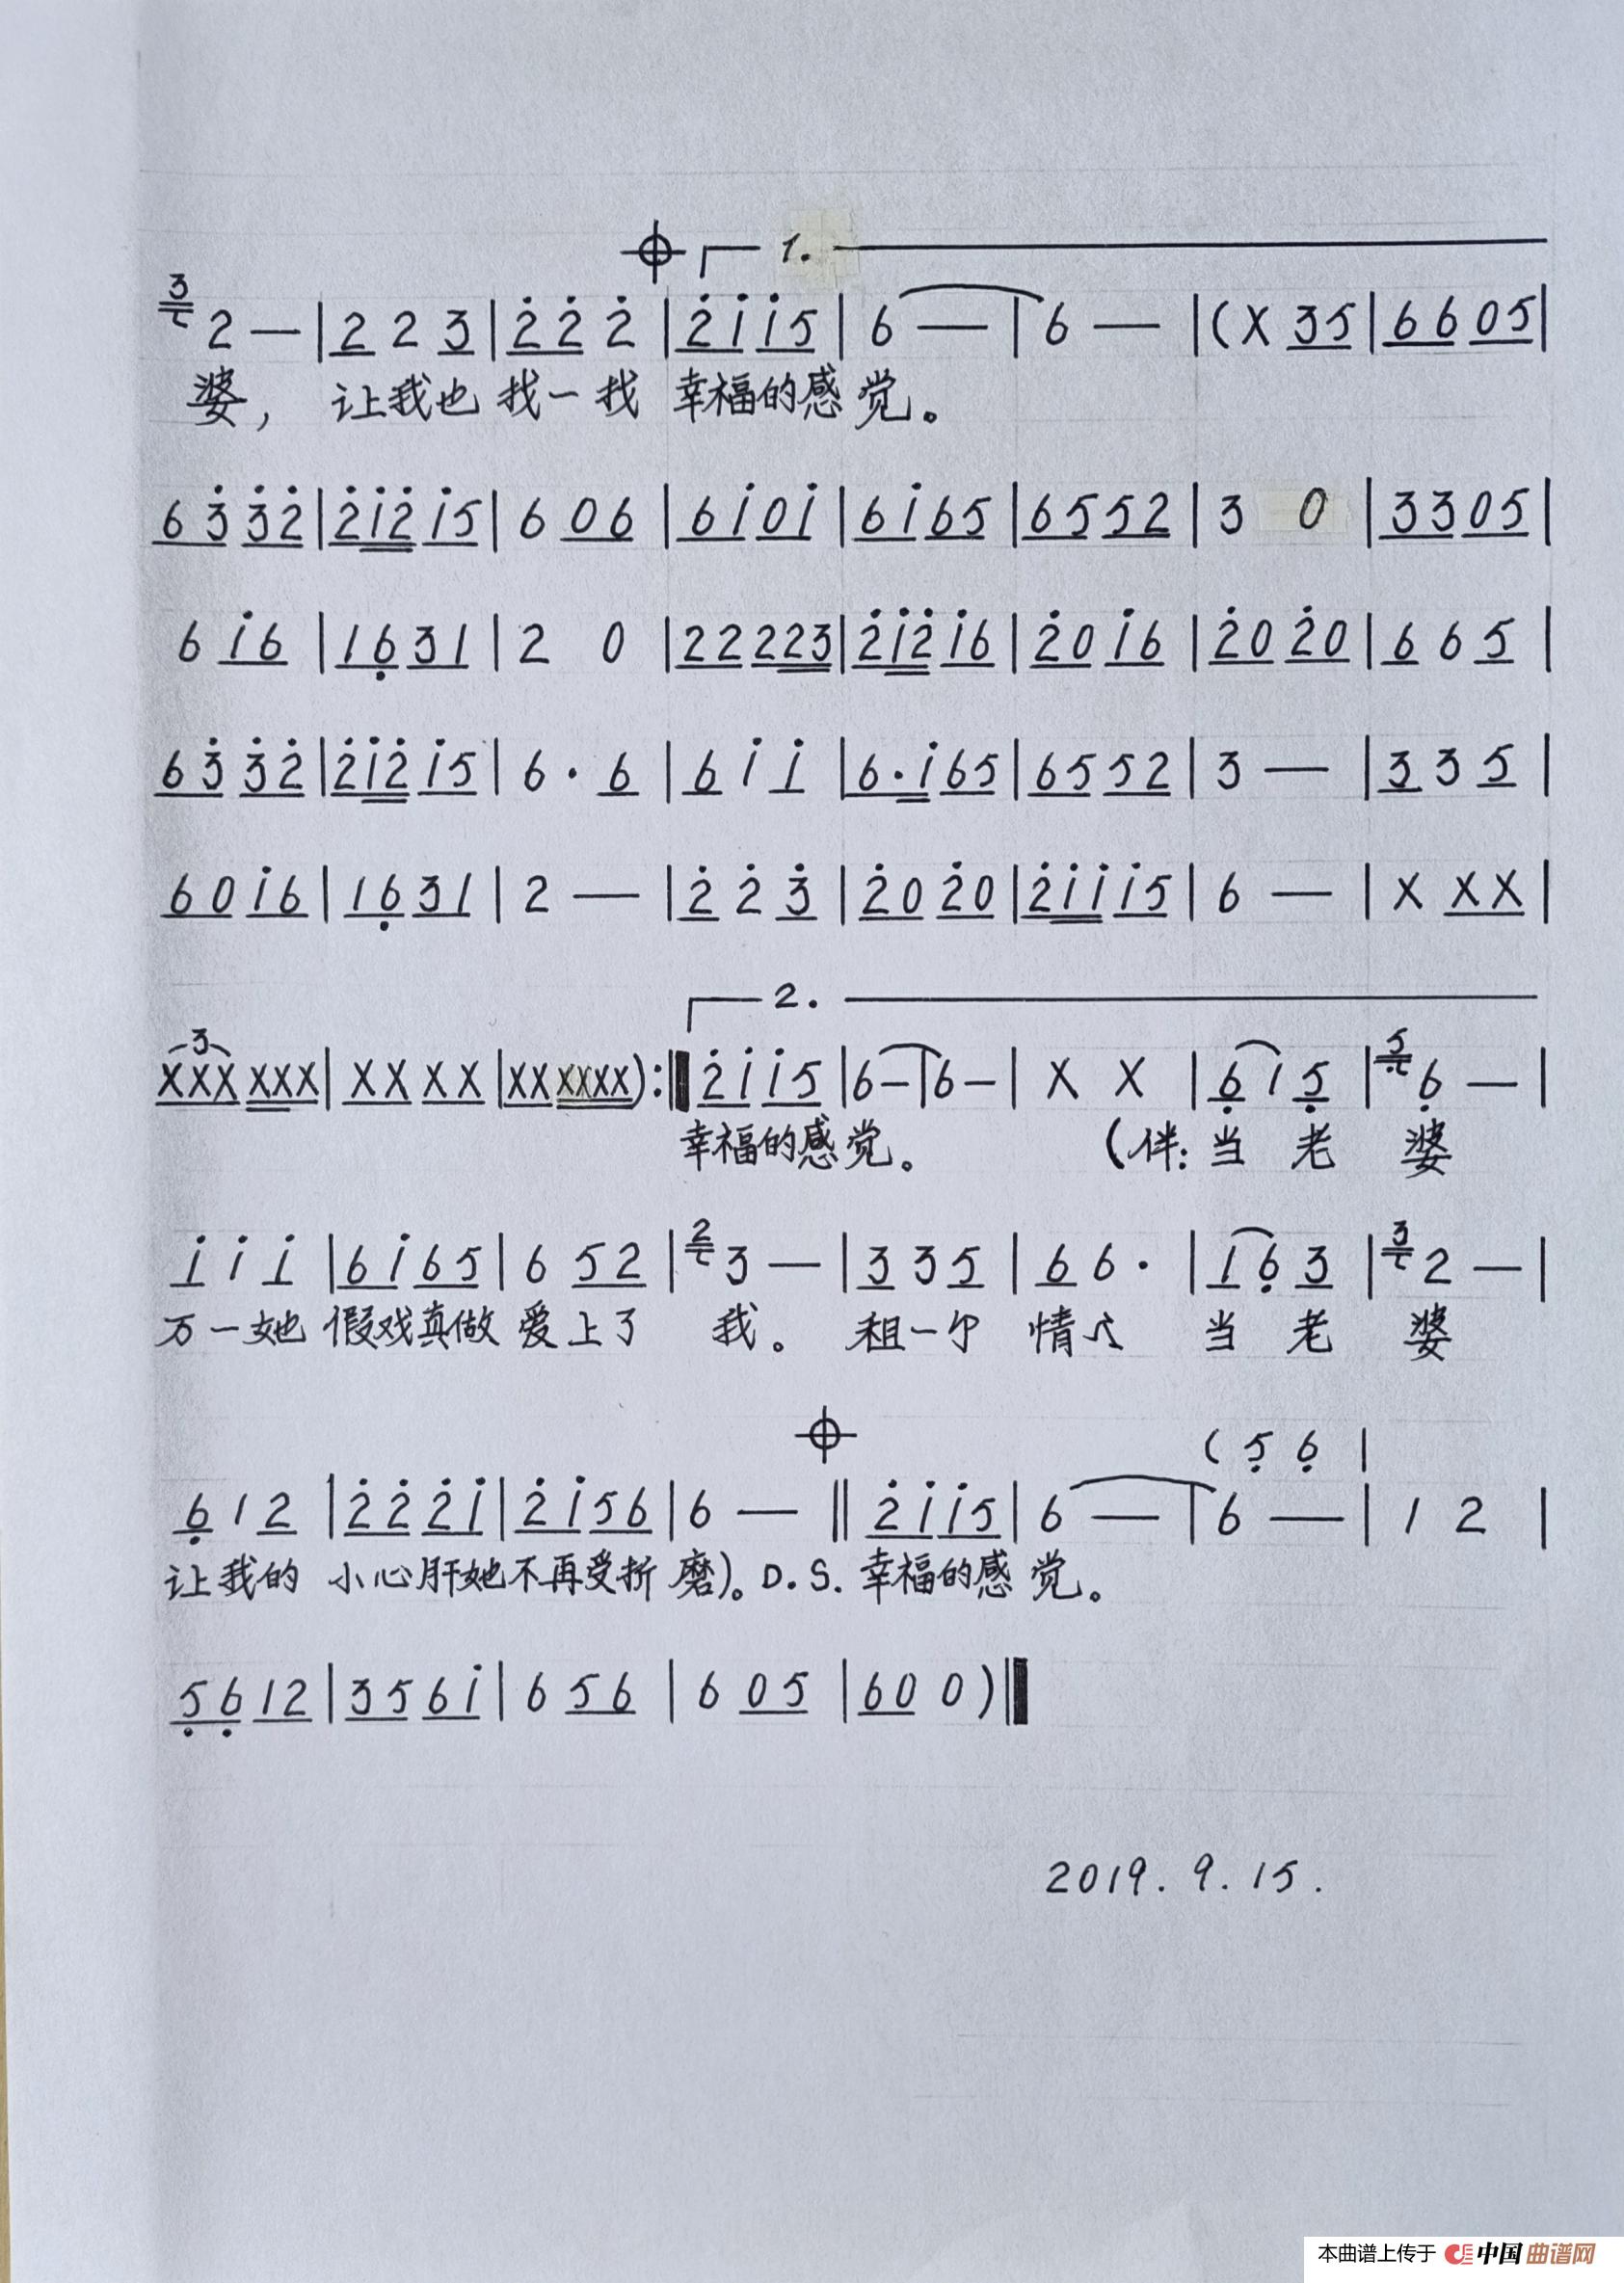 1.
3 2 — | 2 2 3 | 2̇ 2̇ 2̇ | 2̇ i i 5 | 6 — | 6 — | ( X 3 5 | 6 6 0 5 |
婆， 让我也 找一找 幸福的感 觉。
6 3̇ 3̇ 2̇ | 2̇ i 2̇ i 5 | 6 0 6 | 6 i 0 i | 6 i 6 5 | 6 5 5 2 | 3 0 | 3 3 0 5 |
6 i 6 | 1 6̣ 3 1 | 2 0 | 2 2 2 2 3 | 2̇ i 2̇ i 6 | 2̇ 0 i 6 | 2̇ 0 2̇ 0 | 6 6 5 |
6 3̇ 3̇ 2̇ | 2̇ i 2̇ i 5 | 6 · 6 | 6 i i | 6 · i 6 5 | 6 5 5 2 | 3 — | 3 3 5 |
6 0 i 6 | 1 6̣ 3 1 | 2 — | 2̇ 2̇ 3̇ | 2̇ 0 2̇ 0 | 2̇ i i i 5 | 6 — | X X X |
3 2.
X X X X X X | X X X X | X X X X X X ) :‖ 2̇ i i 5 | 6 — | 6 — | X X | 6̣ 1 5̣ | 5̣ 6̣ — |
幸福的感 觉。 （伴: 当 老 婆
i i i | 6 i 6 5 | 6 5 2 | 2 3 — | 3 3 5 | 6 6 · | 1 6̣ 3 | 3 2 — |
万一她 假戏真做 爱上了 我。 租一个 情人 当 老 婆
( 5̣ 6̣ |
6̣ 1 2 | 2̇ 2̇ 2̇ i | 2̇ i 5 6 | 6 — ‖ 2̇ i i 5 | 6 — | 6 — | 1 2 |
让我的 小心肝她不再受折 磨）。D.S. 幸福的感 觉。
5̣ 6̣ 1 2 | 3 5 6 i | 6 5 6 | 6 0 5 | 6 0 0 ) ‖
2019.9.15.
本曲谱上传于 中国曲谱网